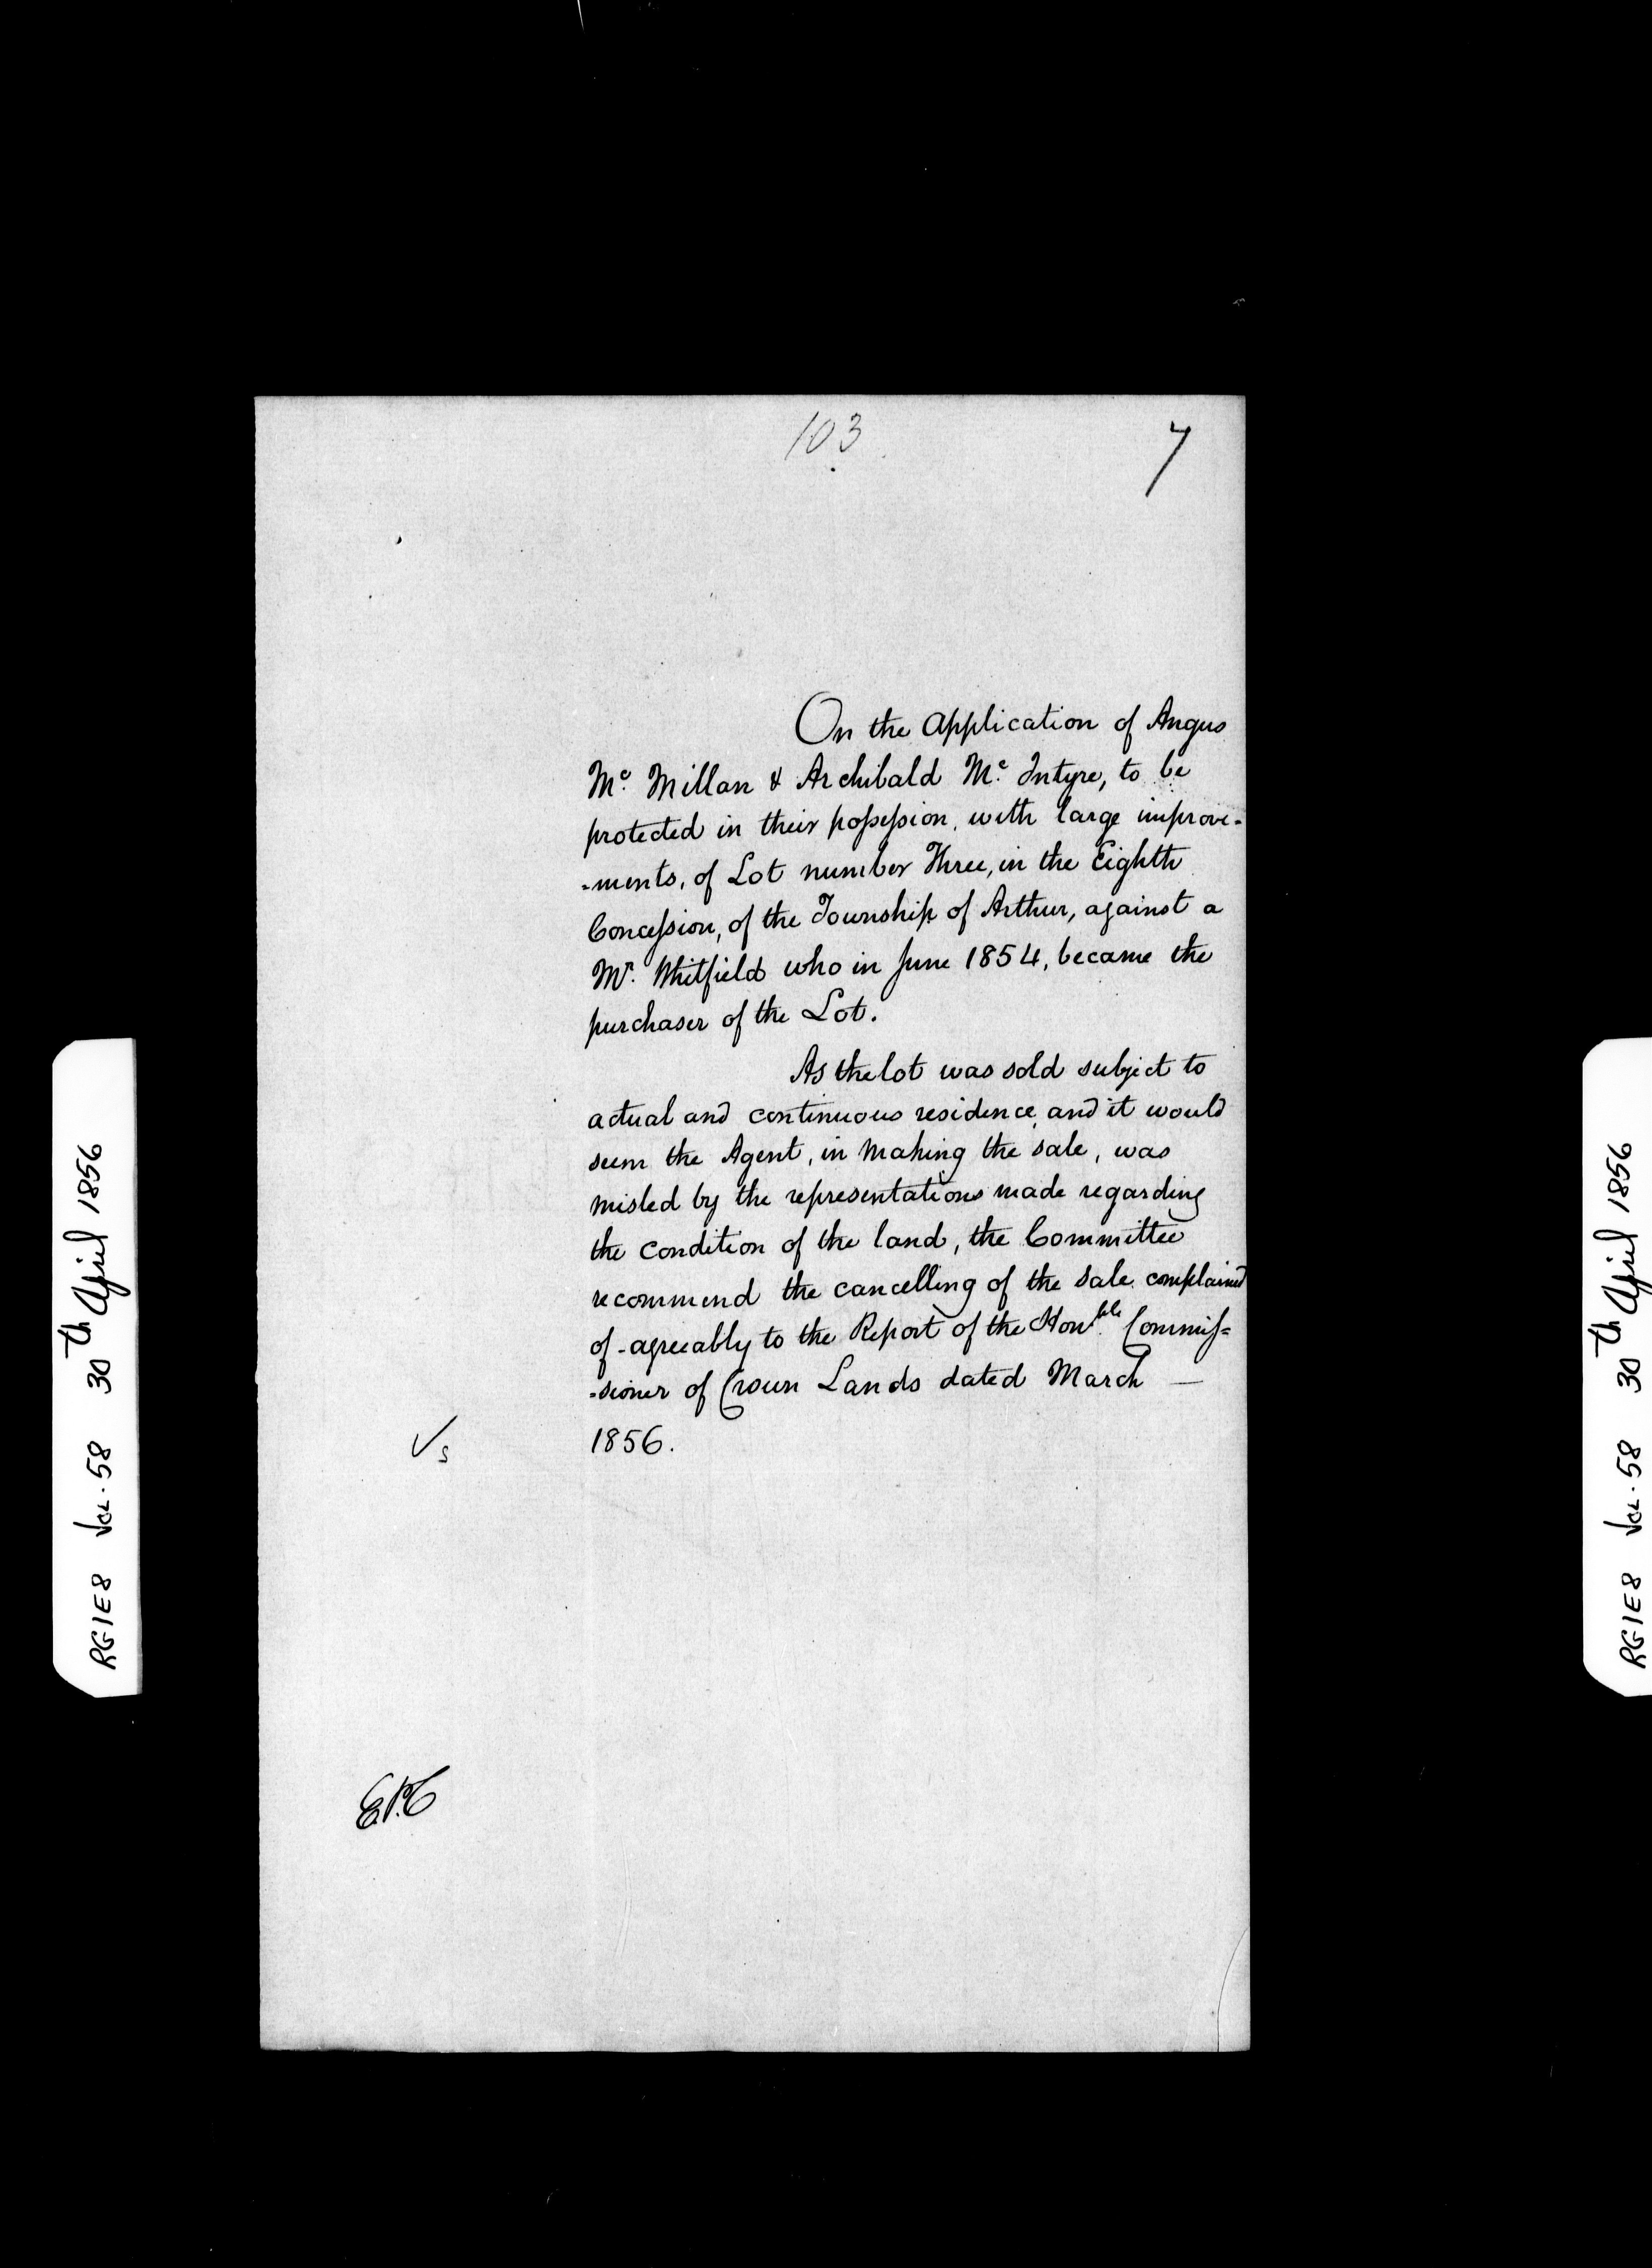 103
7
On the Application of Angus
Mc. Millan & Archibald Mc. Intyre, to be
protected in their possession, with large improve-
-ments, of Lot number Three, in the Eighth
Concession, of the Township of Arthur, against a
Mr. Whitfield who in June 1854, became the
purchaser of the Lot.
As the lot was sold subject to
actual and continuous residence, and it would
seem the Agent, in making the sale, was
misled by the representations made regarding
the condition of the land, the Committee
recommend the cancelling of the sale complained
of - agreeably to the Report of the Honble. Commis=
-sioner of Crown Lands dated March —
1856.
√s
RG1E8 Vol. 58 30th April 1856
RG1E8 Vol. 58 30th April 1856